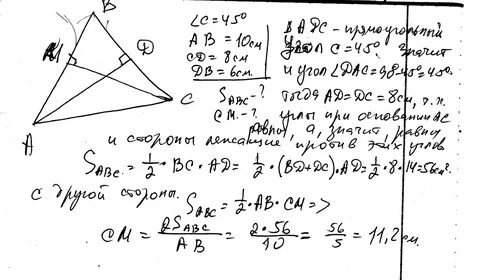 B
M
D
C
A
∠C=45°
AB=10см
CD=8см
DB=6см.
S_ABC-?
CM-?
В ADC - прямоугольный
угол C=45°. Значит
и угол ∠DAC=90-45=45°
тогда AD=DC=8см, т.к.
углы при основании AC
равны, а, значит, равны
и стороны лежащие против этих углов
S_ABC=1/2·BC·AD=1/2·(BD+DC)·AD=1/2·8·14=56см².
С другой стороны. S_ABC=1/2·AB·CM=>
CM=2S_ABC/AB=2·56/10=56/5=11,2см.